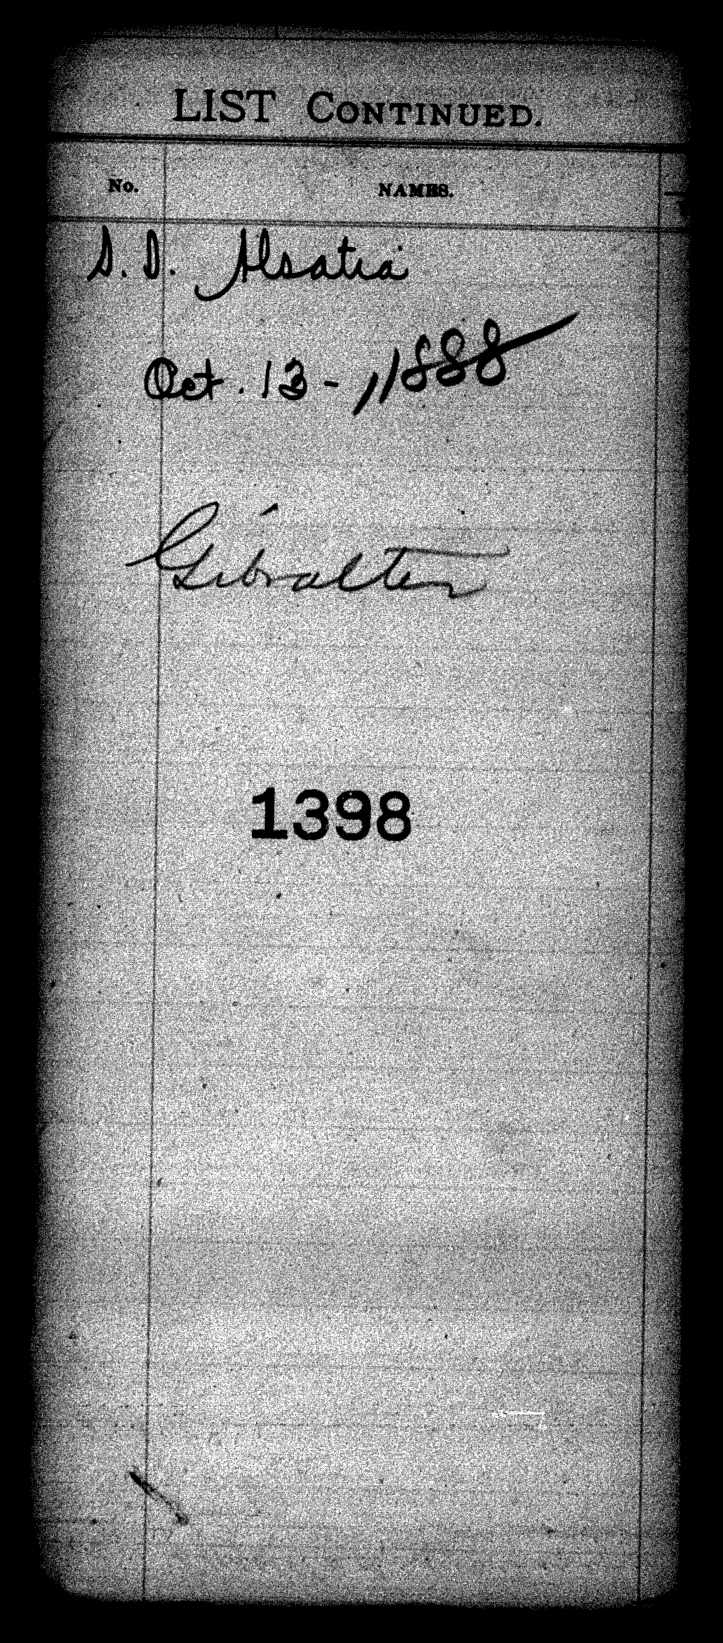 LIST CONTINUED.
No. NAMES.
S. S. Alsatia
Oct. 13 - 1888
Gibralter
1398